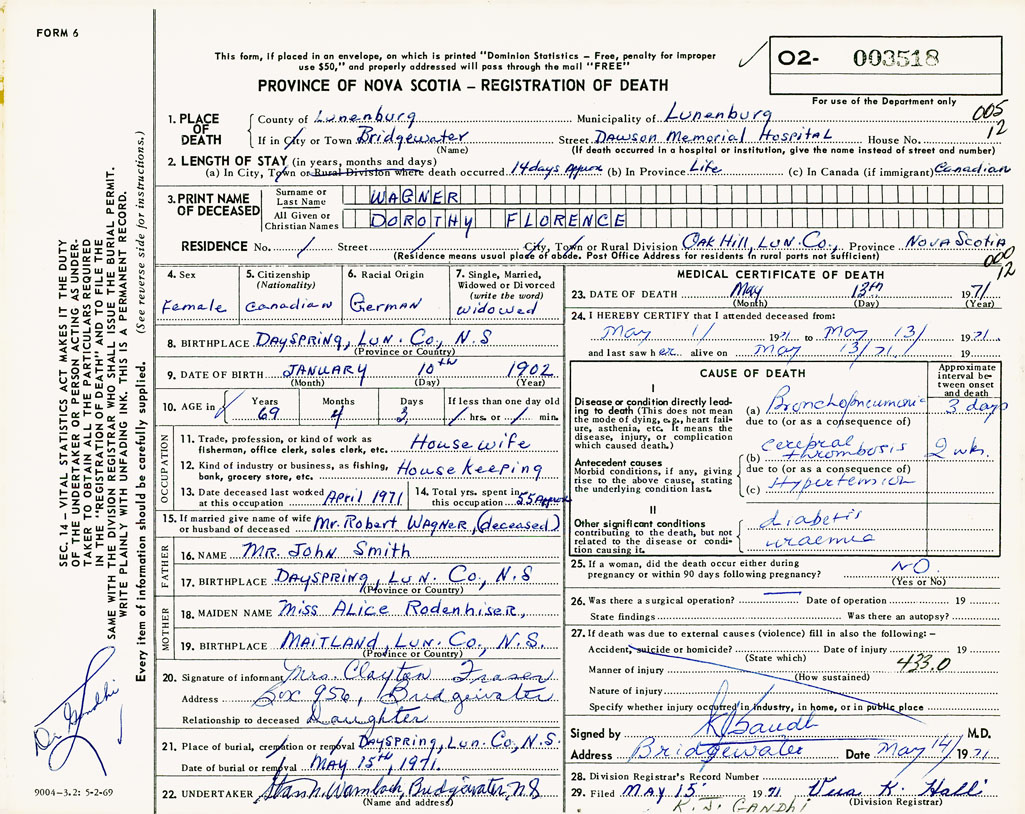 FORM 6
This form, if placed in an envelope, on which is printed "Dominion Statistics - Free, penalty for improper
use $50," and properly addressed will pass through the mail "FREE"
PROVINCE OF NOVA SCOTIA – REGISTRATION OF DEATH
O2- 003518
For use of the Department only
005
12
1. PLACE OF DEATH
County of Lunenburg Municipality of Lunenburg
If in City or Town Bridgewater Street Dawson Memorial Hospital House No.
(Name) (If death occurred in a hospital or institution, give the name instead of street and number)
2. LENGTH OF STAY (in years, months and days)
(a) In City, Town or Rural Division where death occurred 14 days Approx (b) In Province Life (c) In Canada (if immigrant) Canadian
3. PRINT NAME OF DECEASED
Surname or Last Name WAGNER
All Given or Christian Names DOROTHY FLORENCE
RESIDENCE No. / Street / City, Town or Rural Division Oak Hill, Lun. Co., Province Nova Scotia
(Residence means usual place of abode. Post Office Address for residents in rural parts not sufficient)
000
12
4. Sex
Female
5. Citizenship
(Nationality)
Canadian
6. Racial Origin
German
7. Single, Married,
Widowed or Divorced
(write the word)
widowed
8. BIRTHPLACE Dayspring, Lun. Co., N.S
(Province or Country)
9. DATE OF BIRTH January 10th 1902
(Month) (Day) (Year)
10. AGE in Years 69 Months 4 Days 3 If less than one day old / hrs. or / min.
OCCUPATION
11. Trade, profession, or kind of work as
fisherman, office clerk, sales clerk, etc. Housewife
12. Kind of industry or business, as fishing,
bank, grocery store, etc. Housekeeping
13. Date deceased last worked
at this occupation April 1971
14. Total yrs. spent in
this occupation 55 Approx
15. If married give name of wife
or husband of deceased Mr. Robert Wagner, (deceased)
FATHER
16. NAME Mr. John Smith
17. BIRTHPLACE Dayspring, Lun. Co., N.S
(Province or Country)
MOTHER
18. MAIDEN NAME Miss Alice Rodenhiser,
19. BIRTHPLACE Maitland, Lun. Co., N.S.
(Province or Country)
20. Signature of informant Mrs. Clayton Fraser
Address Box 956, Bridgewater
Relationship to deceased Daughter
21. Place of burial, cremation or removal Dayspring, Lun. Co., N.S.
Date of burial or removal May 15th, 1971.
22. UNDERTAKER Bridgewater, NS
(Name and address)
MEDICAL CERTIFICATE OF DEATH
23. DATE OF DEATH May 13th 1971
(Month) (Day) (Year)
24. I HEREBY CERTIFY that I attended deceased from:
May 1/ 1971 to May 13/ 1971.
and last saw her alive on May 13/71. 19
CAUSE OF DEATH
Approximate
interval be-
tween onset
and death
I
Disease or condition directly lead-
ing to death (This does not mean
the mode of dying, e.g., heart fail-
ure, asthenia, etc. It means the
disease, injury, or complication
which caused death.)
(a) Bronchopneumonia 3 days
due to (or as a consequence of)
Antecedent causes
Morbid conditions, if any, giving
rise to the above cause, stating
the underlying condition last.
(b) cerebral thrombosis 2 wks.
due to (or as a consequence of)
(c) Hypertension
II
Other significant conditions
contributing to the death, but not
related to the disease or condi-
tion causing it.
diabetis
uraemia
25. If a woman, did the death occur either during
pregnancy or within 90 days following pregnancy? NO.
(Yes or No)
26. Was there a surgical operation? — Date of operation 19
State findings Was there an autopsy?
27. If death was due to external causes (violence) fill in also the following: –
Accident, suicide or homicide? Date of injury 19
(State which)
433.0
Manner of injury
(How sustained)
Nature of injury
Specify whether injury occurred in industry, in home, or in public place
Signed by M.D.
Address Bridgewater Date May 14/ 1971
28. Division Registrar's Record Number
29. Filed May 15 1971
(Division Registrar)
K. J. GANDHI
SEC. 14 – VITAL STATISTICS ACT MAKES IT THE DUTY
OF THE UNDERTAKER OR PERSON ACTING AS UNDER-
TAKER TO OBTAIN ALL THE PARTICULARS REQUIRED
IN THE "REGISTRATION OF DEATH" AND TO FILE THE
SAME WITH THE DIVISION REGISTRAR WHO SHALL ISSUE THE BURIAL PERMIT.
WRITE PLAINLY WITH UNFADING INK. THIS IS A PERMANENT RECORD.
Every item of information should be carefully supplied. (See reverse side for instructions.)
Dr Gandhi
9004-3.2: 5-2-69